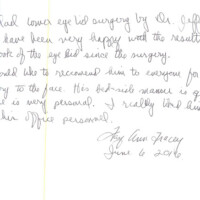 had lower eye lid surgery by Dr. Jeff
have been very happy with the result
look of the eye lid since the surgery.
ould like to recommend him to everyone for
ry to the face. His bed-side manner is
e is very personal. I really liked him
his office personnel.
Ann Tracey
June 6 2016